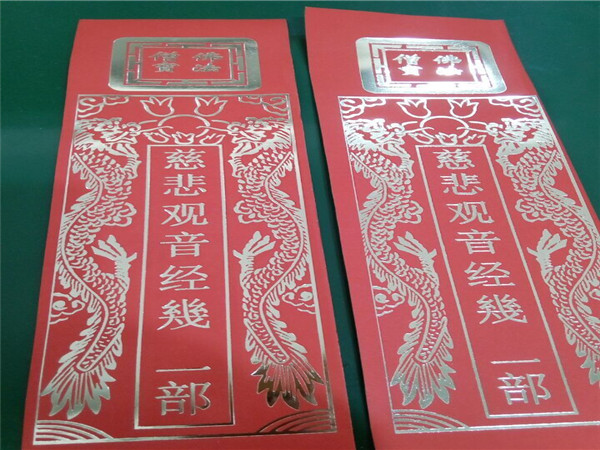 佛法
僧寶
慈悲观音经幾 一部
佛法
僧寶
慈悲观音经幾 一部